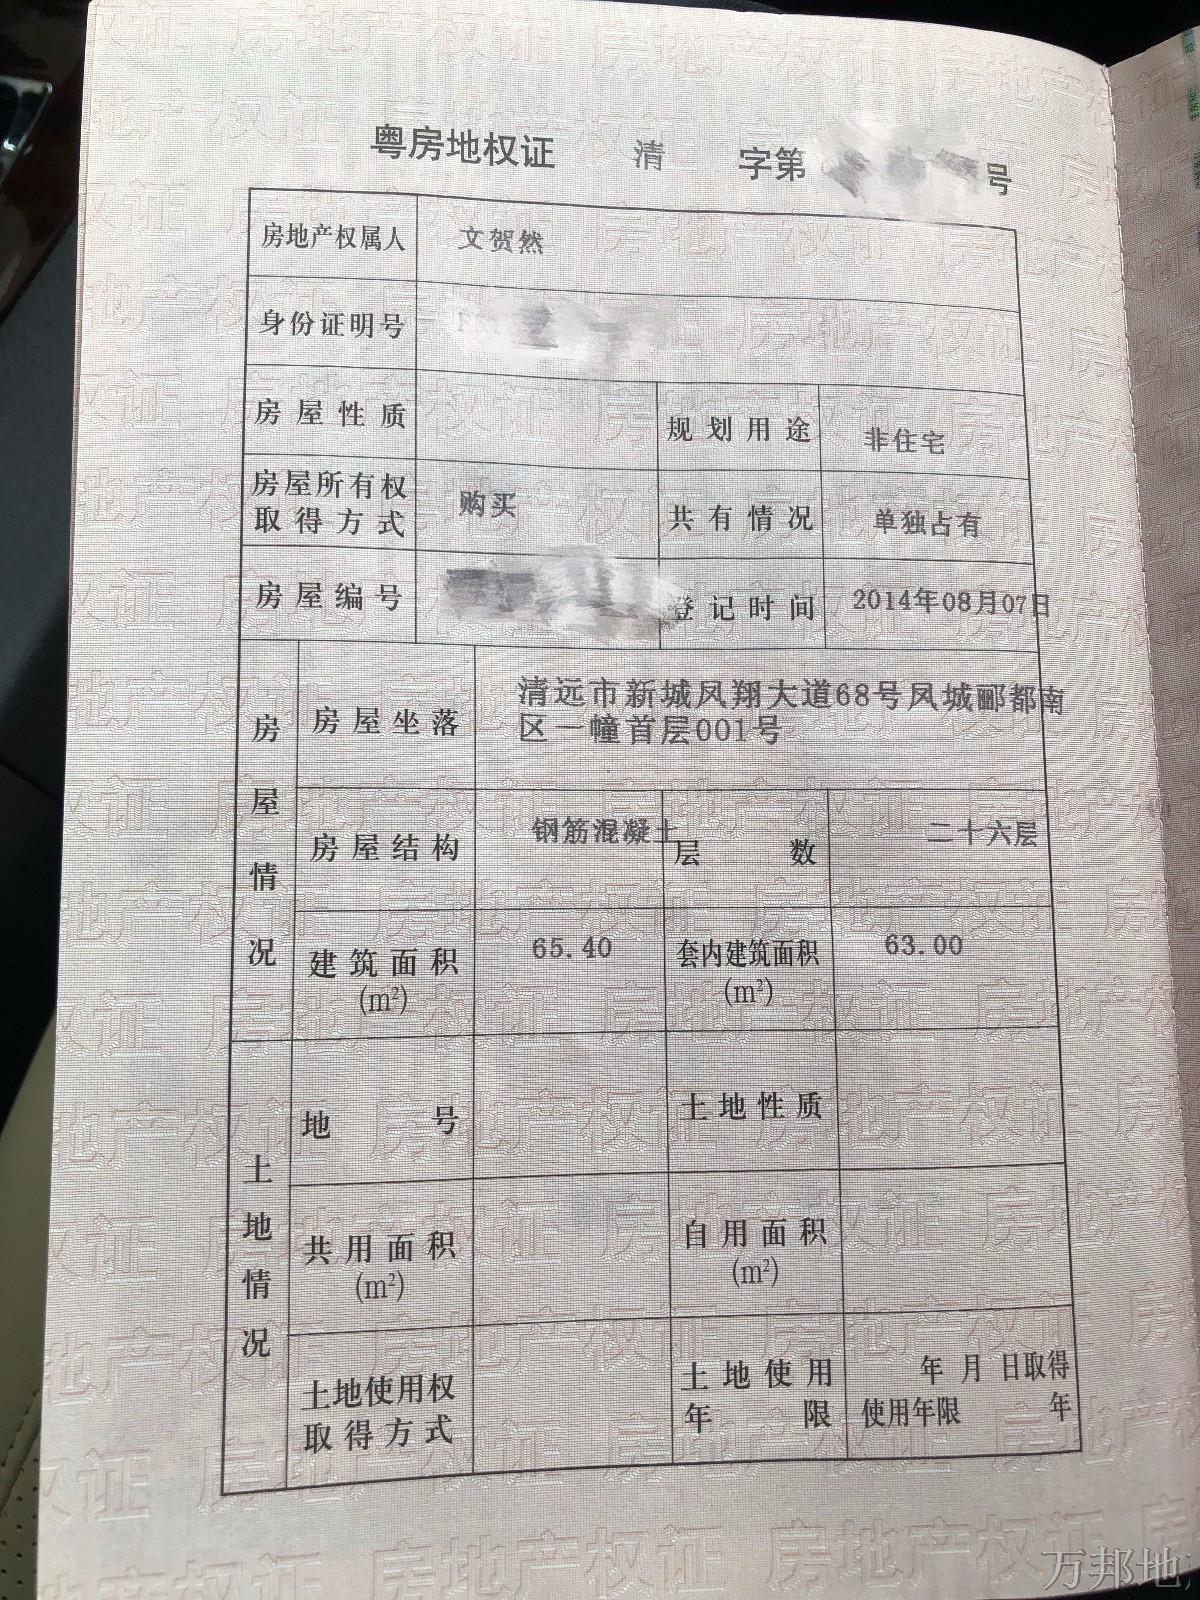 粤房地权证 清 字第 号
房地产权属人 文贺然
身份证明号
房屋性质 规划用途 非住宅
房屋所有权
取得方式 购买 共有情况 单独占有
房屋编号 登记时间 2014年08月07日
房屋情况
房屋坐落 清远市新城凤翔大道68号凤城郦都南
区一幢首层001号
房屋结构 钢筋混凝土 层数 二十六层
建筑面积
(m²) 65.40 套内建筑面积
(m²) 63.00
土地情况
地号 土地性质
共用面积
(m²) 自用面积
(m²)
土地使用权
取得方式 土地使用
年限 年 月 日取得
使用年限 年
万邦地